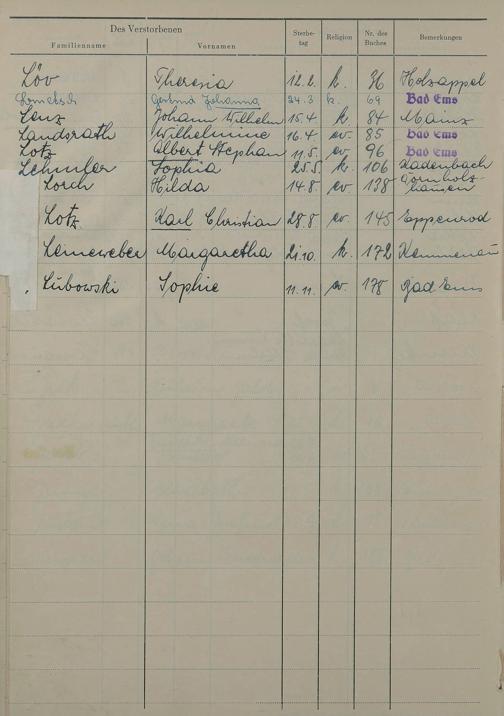 Des Verstorbenen Sterbe-tag Religion Nr. des Buches Bemerkungen
Familienname Vornamen
Löv Theresia 12.2. k. 36 Holzappel
Gertrud Johanna 24.3 k. 69 Bad Ems
Lenz Johann Wilhelm 15.4 k 84 Mainz
Landsrath Wilhelmine 16.4 ev. 85 Bad Ems
Lotz Albert Stephan 11.5. ev 96 Bad Ems
Sophia 25.5. k. 106 Kadenbach
Hilda 14.8 ev 138
hausen
Lotz Karl Christian 28.8 ev. 145 Eppenrod
Leineweber Margaretha 21.10. k. 172 Kemmenau
Lubowski Sophie 11.11. ev. 178 Bad Ems